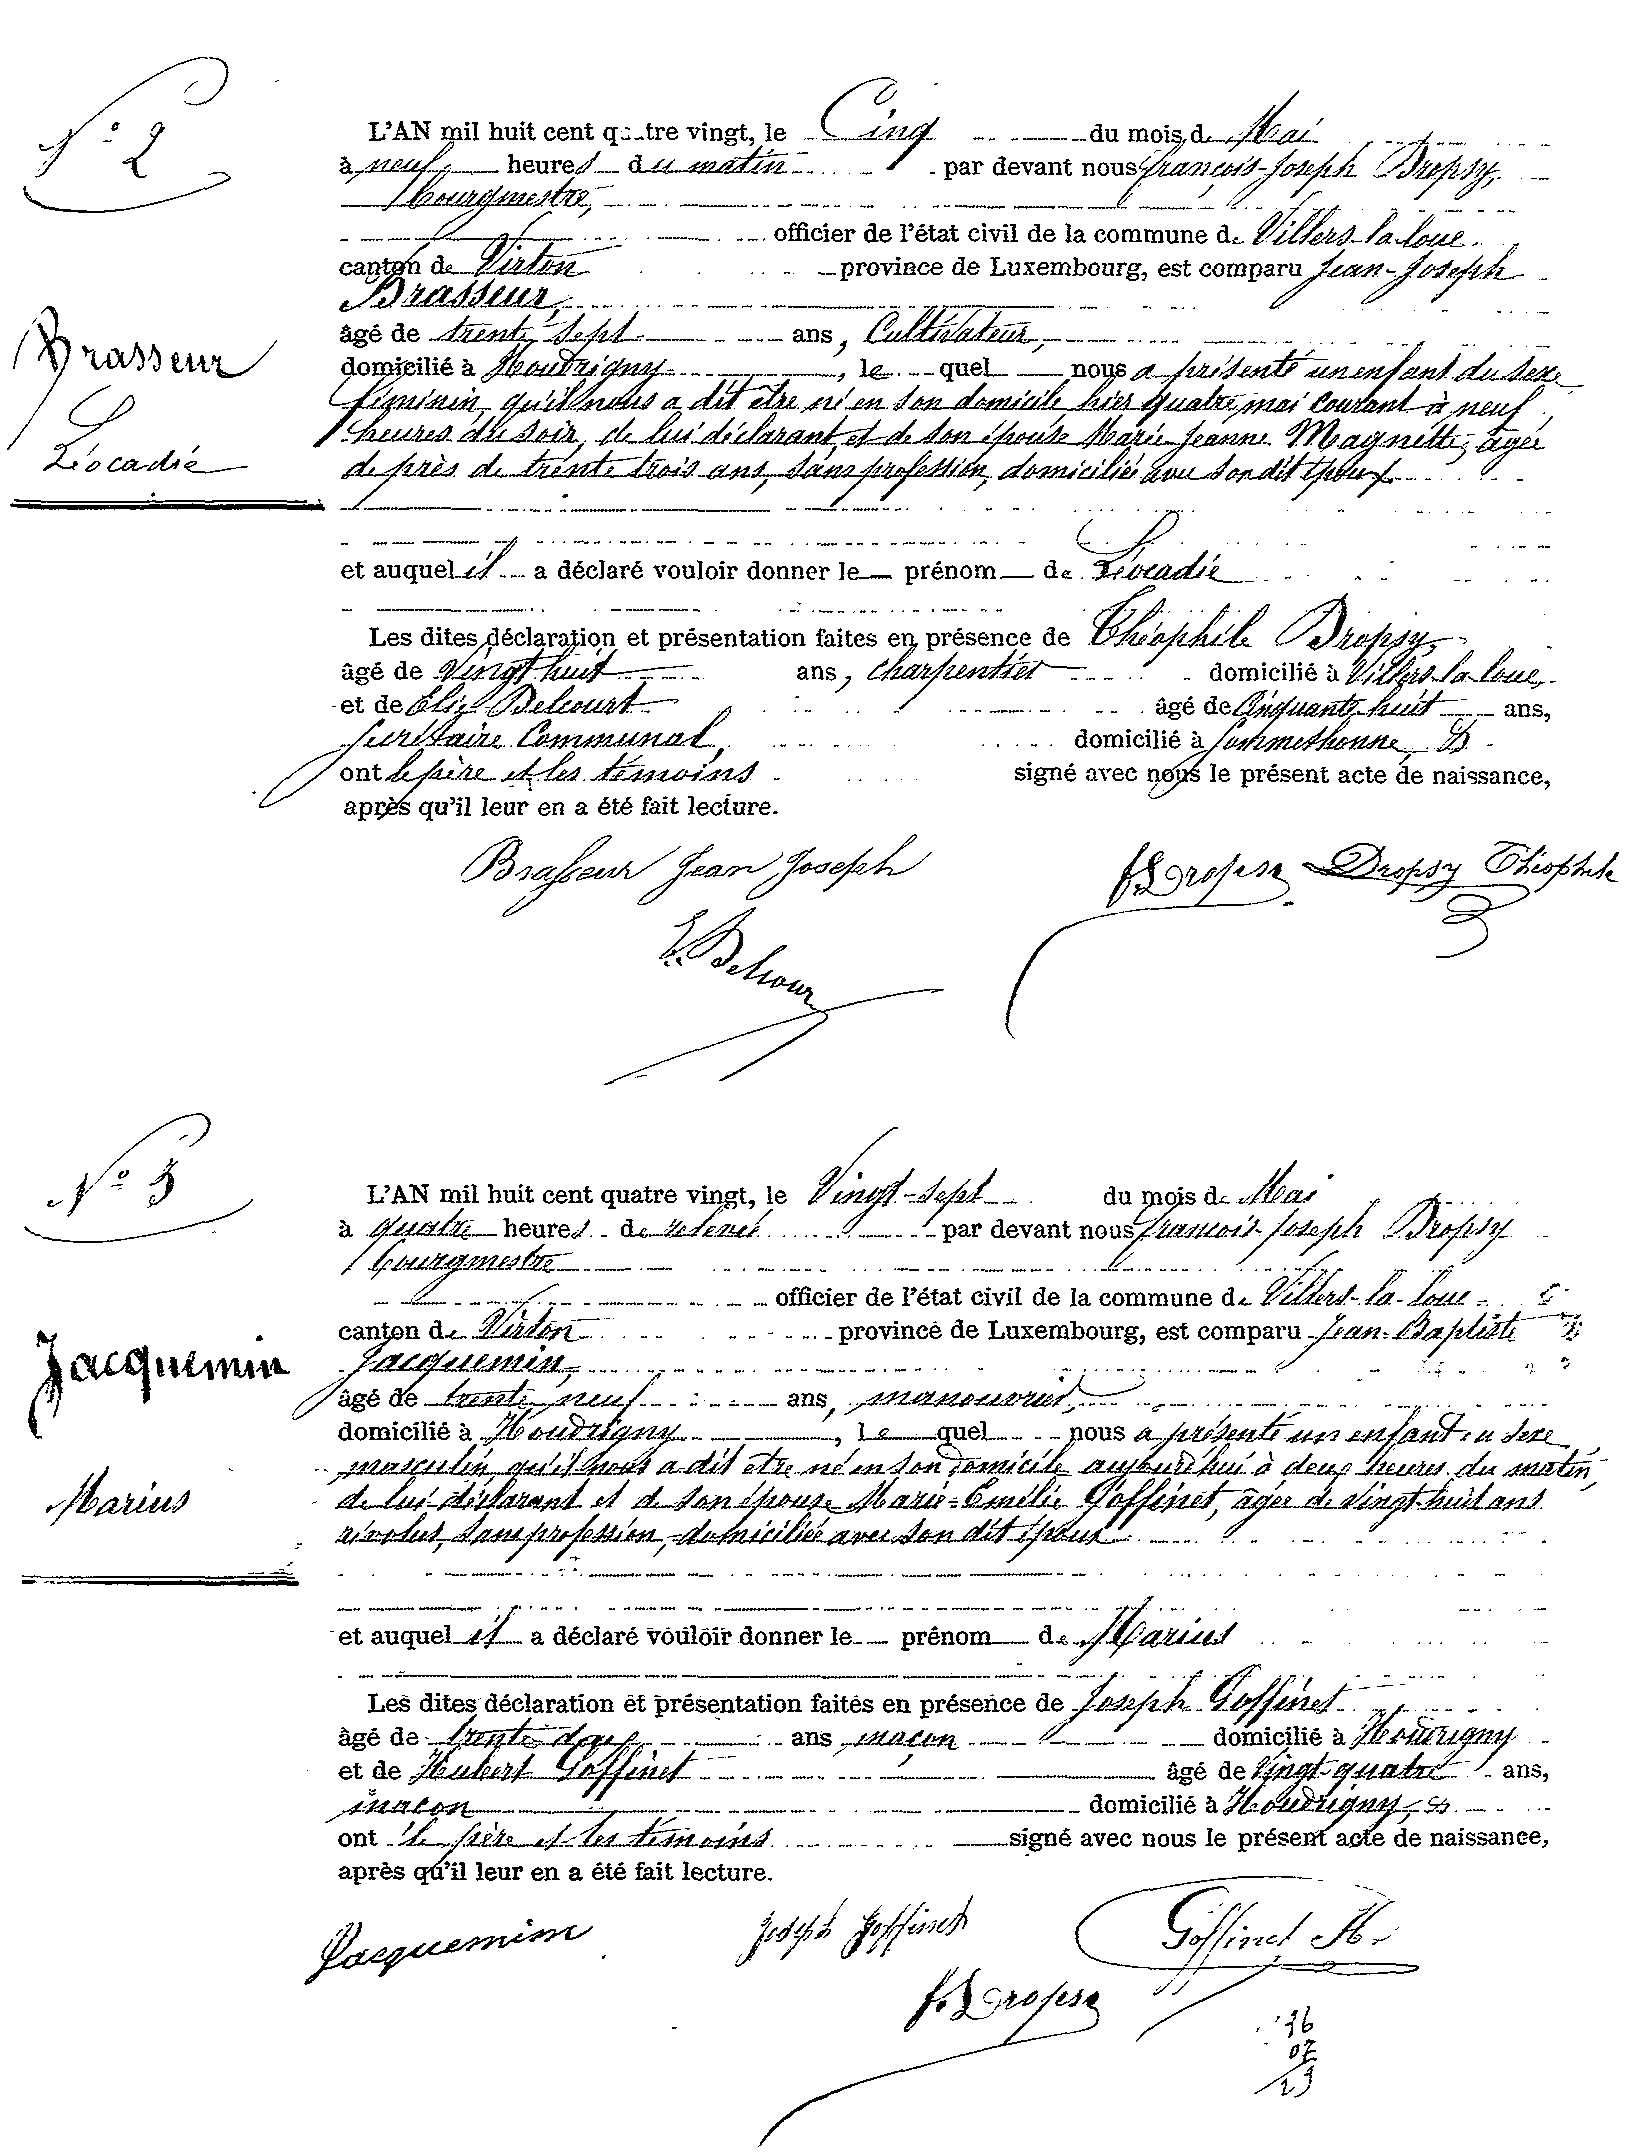 N° 2
L'AN mil huit cent quatre vingt, le Cinq du mois de Mai
à neuf heures du matin par devant nous François-Joseph Dropsy,
bourgmestre,
officier de l'état civil de la commune de Villers-la-loue
canton de Virton province de Luxembourg, est comparu Jean-Joseph
Brasseur,
âgé de trente sept ans, Cultivateur,
domicilié à Houdrigny, le quel nous a présenté un enfant du sexe
féminin, qu'il nous a dit être né en son domicile hier quatre mai courant à neuf
heures du soir, de lui déclarant, et de son épouse Marie Jeanne Magnette, agée
de près de trente trois ans, sans profession, domiciliée avec son dit époux.
Brasseur
Léocadie
et auquel il a déclaré vouloir donner le prénom de Léocadie
Les dites déclaration et présentation faites en présence de Théophile Dropsy,
âgé de Vingt huit ans, charpentier domicilié à Villers-la-loue,
et de Elie Delcourt âgé de Cinquante-huit ans,
secrétaire Communal, domicilié à Sommethonne,
ont le père et les témoins signé avec nous le présent acte de naissance,
après qu'il leur en a été fait lecture.
Brasseur Jean Joseph
F. Dropsy Dropsy Théophile
E. Delcour
N° 3
L'AN mil huit cent quatre vingt, le Vingt-sept du mois de Mai
à quatre heures de relevée par devant nous François-Joseph Dropsy
bourgmestre
officier de l'état civil de la commune de Villers-la-loue
canton de Virton province de Luxembourg, est comparu Jean-Baptiste
Jacquemin,
âgé de trente neuf ans, manouvrier,
domicilié à Houdrigny, le quel nous a présenté un enfant du sexe
masculin, qu'il nous a dit être né en son domicile aujourd'hui à deux heures du matin,
de lui déclarant et de son épouse Marie-Emélie Goffinet, âgée de vingt-huit ans
révolus, sans profession, domiciliée avec son dit époux
Jacquemin
Marius
et auquel il a déclaré vouloir donner le prénom de Marius
Les dites déclaration et présentation faites en présence de Joseph Goffinet
âgé de trente deux ans maçon domicilié à Houdrigny
et de Hubert Goffinet âgé de Vingt-quatre ans,
maçon domicilié à Houdrigny,
ont le père et les témoins signé avec nous le présent acte de naissance,
après qu'il leur en a été fait lecture.
Jacquemin Joseph Goffinet Goffinet H.
F. Dropsy
07
23